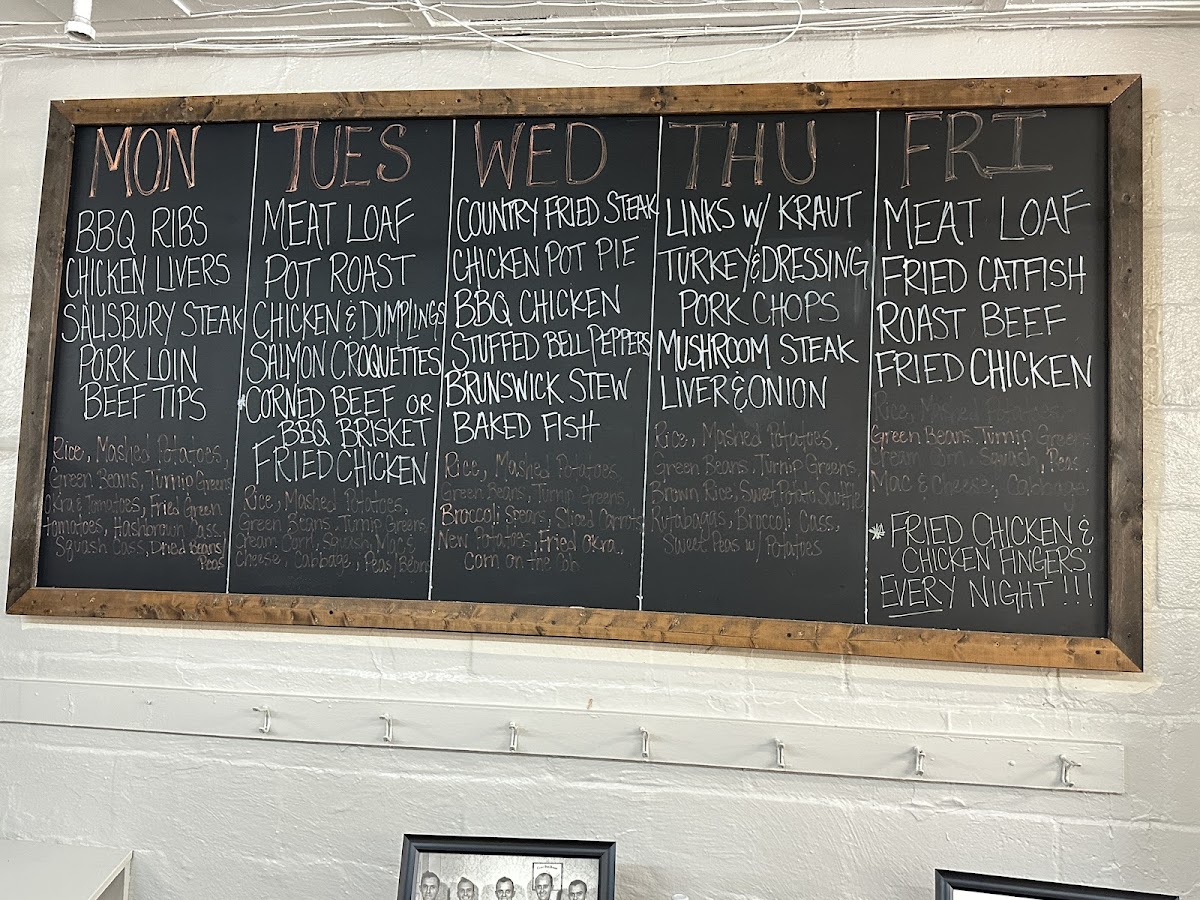 MON
BBQ RIBS
CHICKEN LIVERS
SALISBURY STEAK
PORK LOIN
BEEF TIPS
Rice, Mashed Potatoes,
Green Beans, Turnip Greens
Okra & Tomatoes, Fried Green
Tomatoes, Hashbrown Cass.
Squash Cass, Dried Beans/
Peas
TUES
MEAT LOAF
POT ROAST
CHICKEN & DUMPLINGS
SALMON CROQUETTES
*CORNED BEEF OR
BBQ BRISKET
FRIED CHICKEN
Rice, Mashed Potatoes,
Green Beans, Turnip Greens
Cream Corn, Squash, Mac &
Cheese, Cabbage, Peas/Beans
WED
COUNTRY FRIED STEAK
CHICKEN POT PIE
BBQ CHICKEN
STUFFED BELL PEPPERS
BRUNSWICK STEW
BAKED FISH
Rice, Mashed Potatoes
Green Beans, Turnip Greens,
Broccoli Spears, Sliced Carrots
New Potatoes, Fried Okra,
Corn on the Cob
THU
LINKS W/ KRAUT
TURKEY & DRESSING
PORK CHOPS
MUSHROOM STEAK
LIVER & ONION
Rice, Mashed Potatoes
Green Beans, Turnip Greens,
Brown Rice, Sweet Potato Souffle,
Rutabagas, Broccoli Cass,
Sweet Peas w/ Potatoes
FRI
MEAT LOAF
FRIED CATFISH
ROAST BEEF
FRIED CHICKEN
Rice, Mashed Potatoes,
Green Beans, Turnip Greens,
Cream Corn, Squash, Peas
Mac & Cheese, Cabbage
* FRIED CHICKEN &
CHICKEN FINGERS
EVERY NIGHT !!!